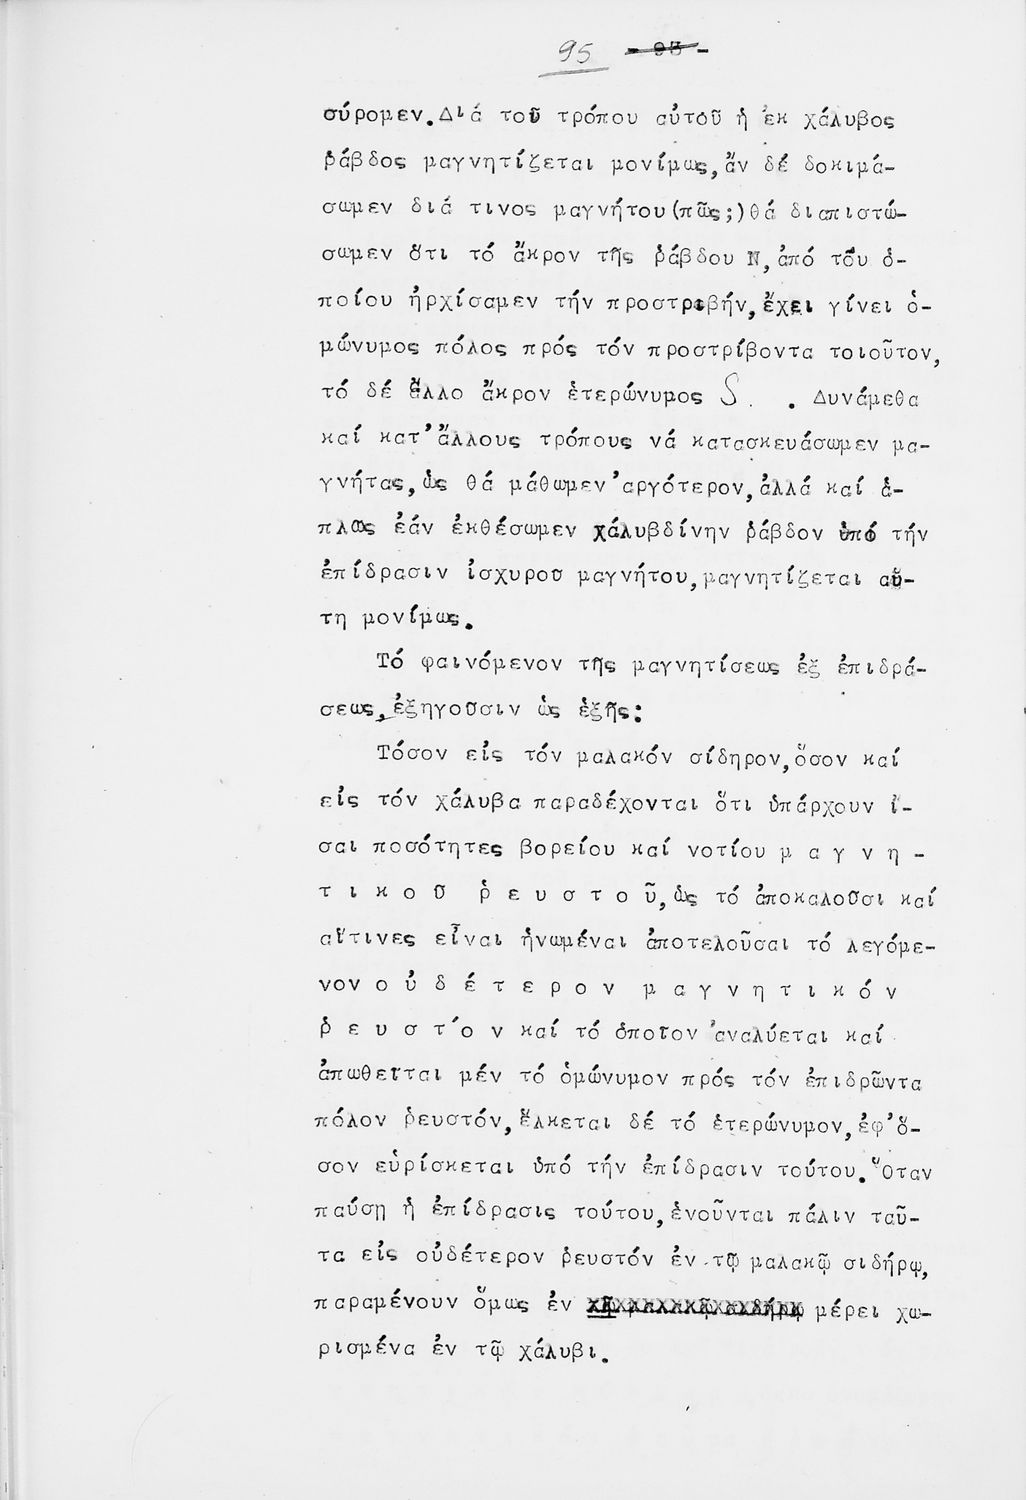 95 - 93 -
σύρομεν. Διά τοῦ τρόπου αὐτοῦ ἡ ἐκ χάλυβος
ράβδος μαγνητίζεται μονίμως, ἄν δέ δοκιμά-
σωμεν διά τινος μαγνήτου (πῶς;) θά διαπιστώ-
σωμεν ὅτι τό ἄκρον τῆς ράβδου N, ἀπό τοῦ ὁ-
ποίου ἠρχίσαμεν τήν προστριβήν, ἔχει γίνει ὁ-
μώνυμος πόλος πρός τόν προστρίβοντα τοιοῦτον,
τό δέ ἄλλο ἄκρον ἑτερώνυμος S . . Δυνάμεθα
καί κατ' ἄλλους τρόπους νά κατασκευάσωμεν μα-
γνήτας, ὡς θά μάθωμεν ἀργότερον, ἀλλά καί ἁ-
πλῶς ἐάν ἐκθέσωμεν χάλυβδίνην ράβδον ὑπό τήν
ἐπίδρασιν ἰσχυροῦ μαγνήτου, μαγνητίζεται αὕ-
τη μονίμως.
Τό φαινόμενον τῆς μαγνητίσεως ἐξ ἐπιδρά-
σεως, ἐξηγοῦσιν ὡς ἑξῆς:
Τόσον εἰς τόν μαλακόν σίδηρον, ὅσον καί
εἰς τόν χάλυβα παραδέχονται ὅτι ὑπάρχουν ἴ-
σαι ποσότητες βορείου καί νοτίου μ α γ ν η -
τ ι κ ο ῦ ῥ ε υ σ τ ο ῦ, ὡς τό ἀποκαλοῦσι καί
αἵτινες εἶναι ἡνωμέναι ἀποτελοῦσαι τό λεγόμε-
νον ο ὐ δ έ τ ε ρ ο ν μ α γ ν η τ ι κ ό ν
ῥ ε υ σ τ ό ν καί τό ὁποῖον ἀναλύεται καί
ἀπωθεῖται μέν τό ὁμώνυμον πρός τόν ἐπιδρῶντα
πόλον ῥευστόν, ἕλκεται δέ τό ἑτερώνυμον, ἐφ' ὅ-
σον εὑρίσκεται ὑπό τήν ἐπίδρασιν τούτου. Ὅταν
παύσῃ ἡ ἐπίδρασις τούτου, ἑνοῦνται πάλιν ταῦ-
τα εἰς οὐδέτερον ῥευστόν ἐν τῷ μαλακῷ σιδήρῳ,
παραμένουν ὅμως ἐν μέρει χω-
ρισμένα ἐν τῷ χάλυβι.